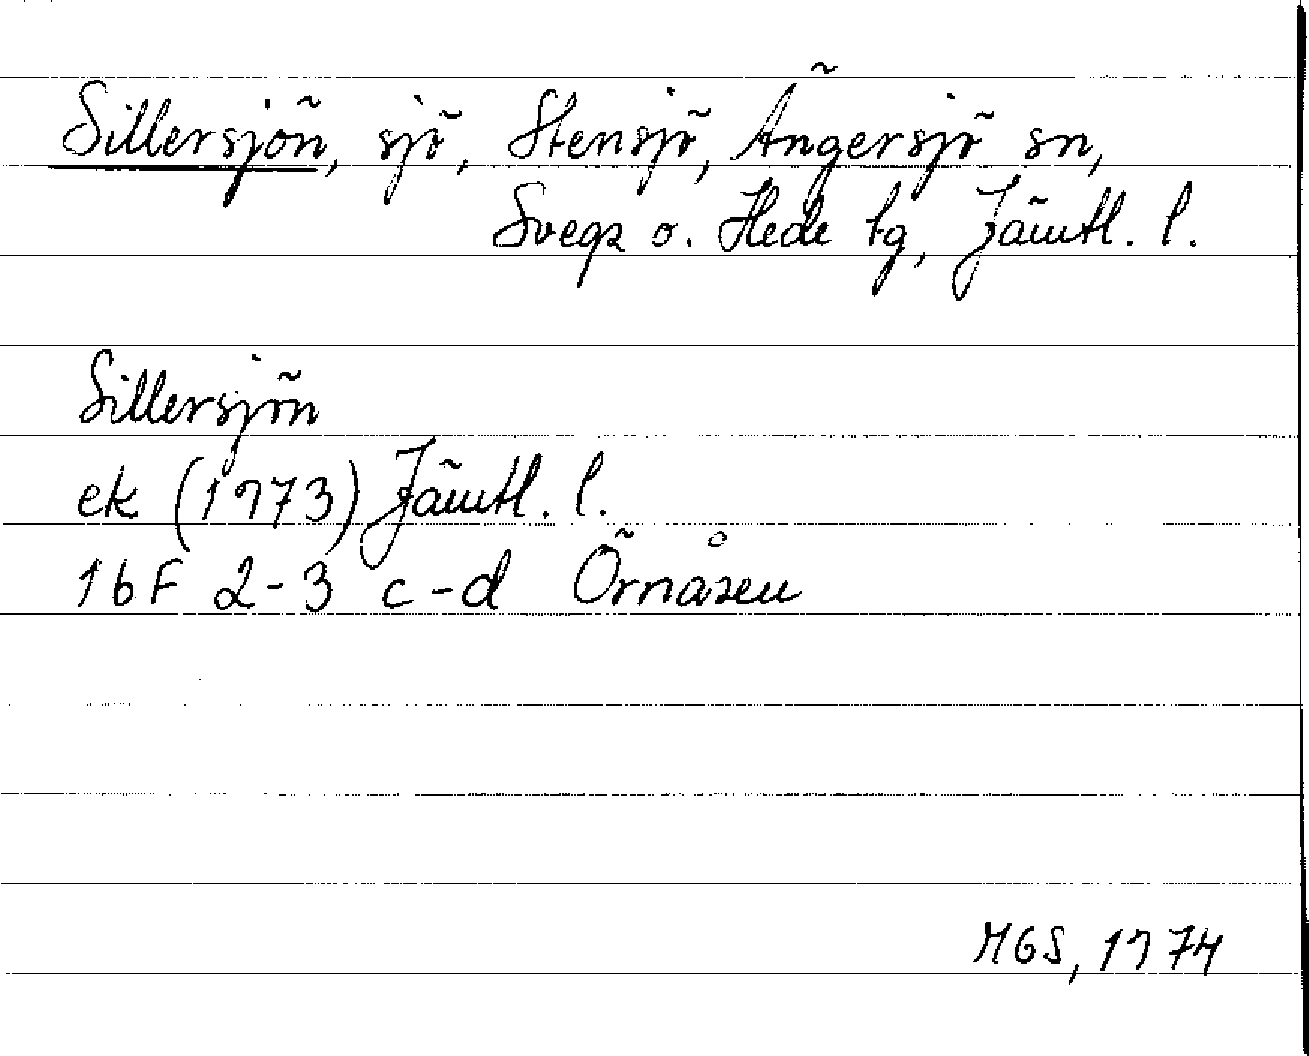 Sillersjön, sjö, Stensjö, Ängersjö sn,
Svegs o. Hede tg, Jämtl. l.
Sillersjön
ek (1973) Jämtl. l.
16F 2-3 c-d Örnåsen
MGS, 1974